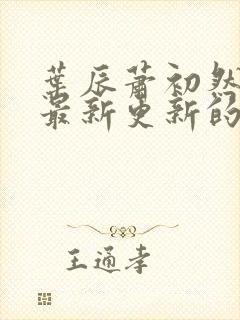 葉辰蕭初然
最新更新的
王通孝